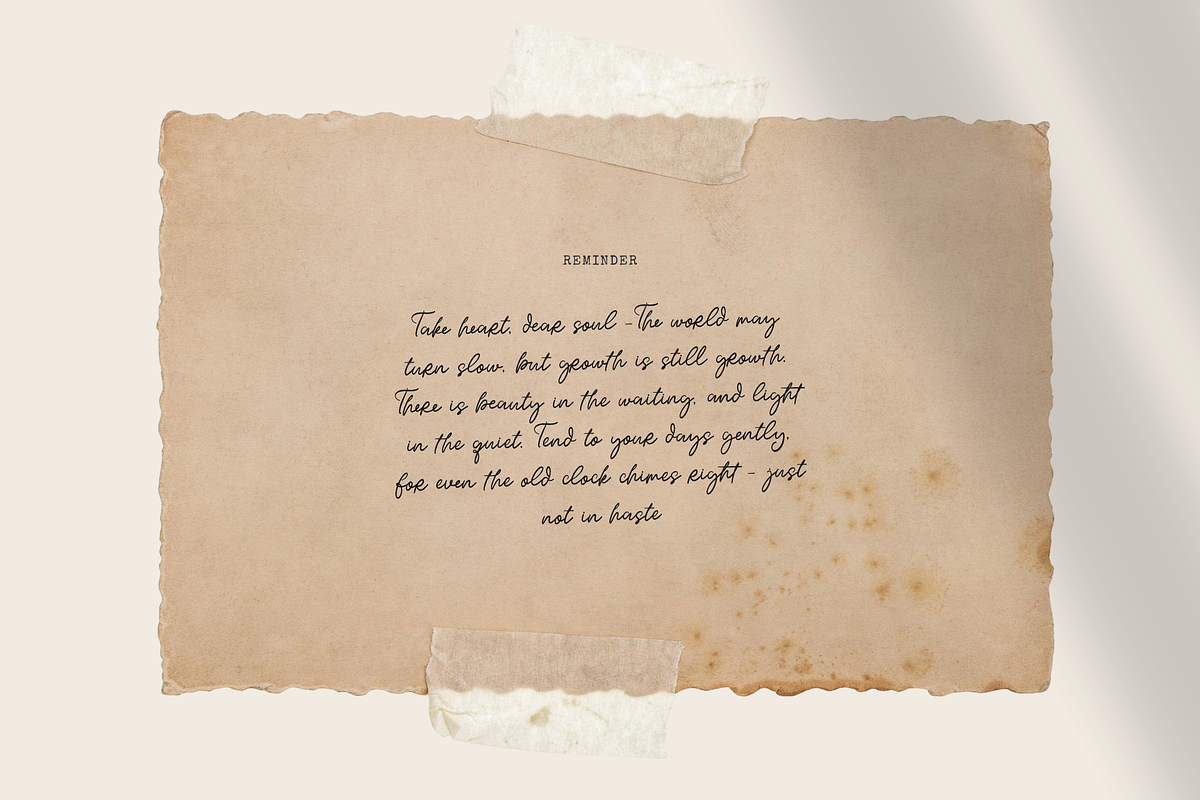 REMINDER
Take heart, dear soul -The world may
turn slow, but growth is still growth.
There is beauty in the waiting, and light
in the quiet. Tend to your days gently,
for even the old clock chimes right - just
not in haste